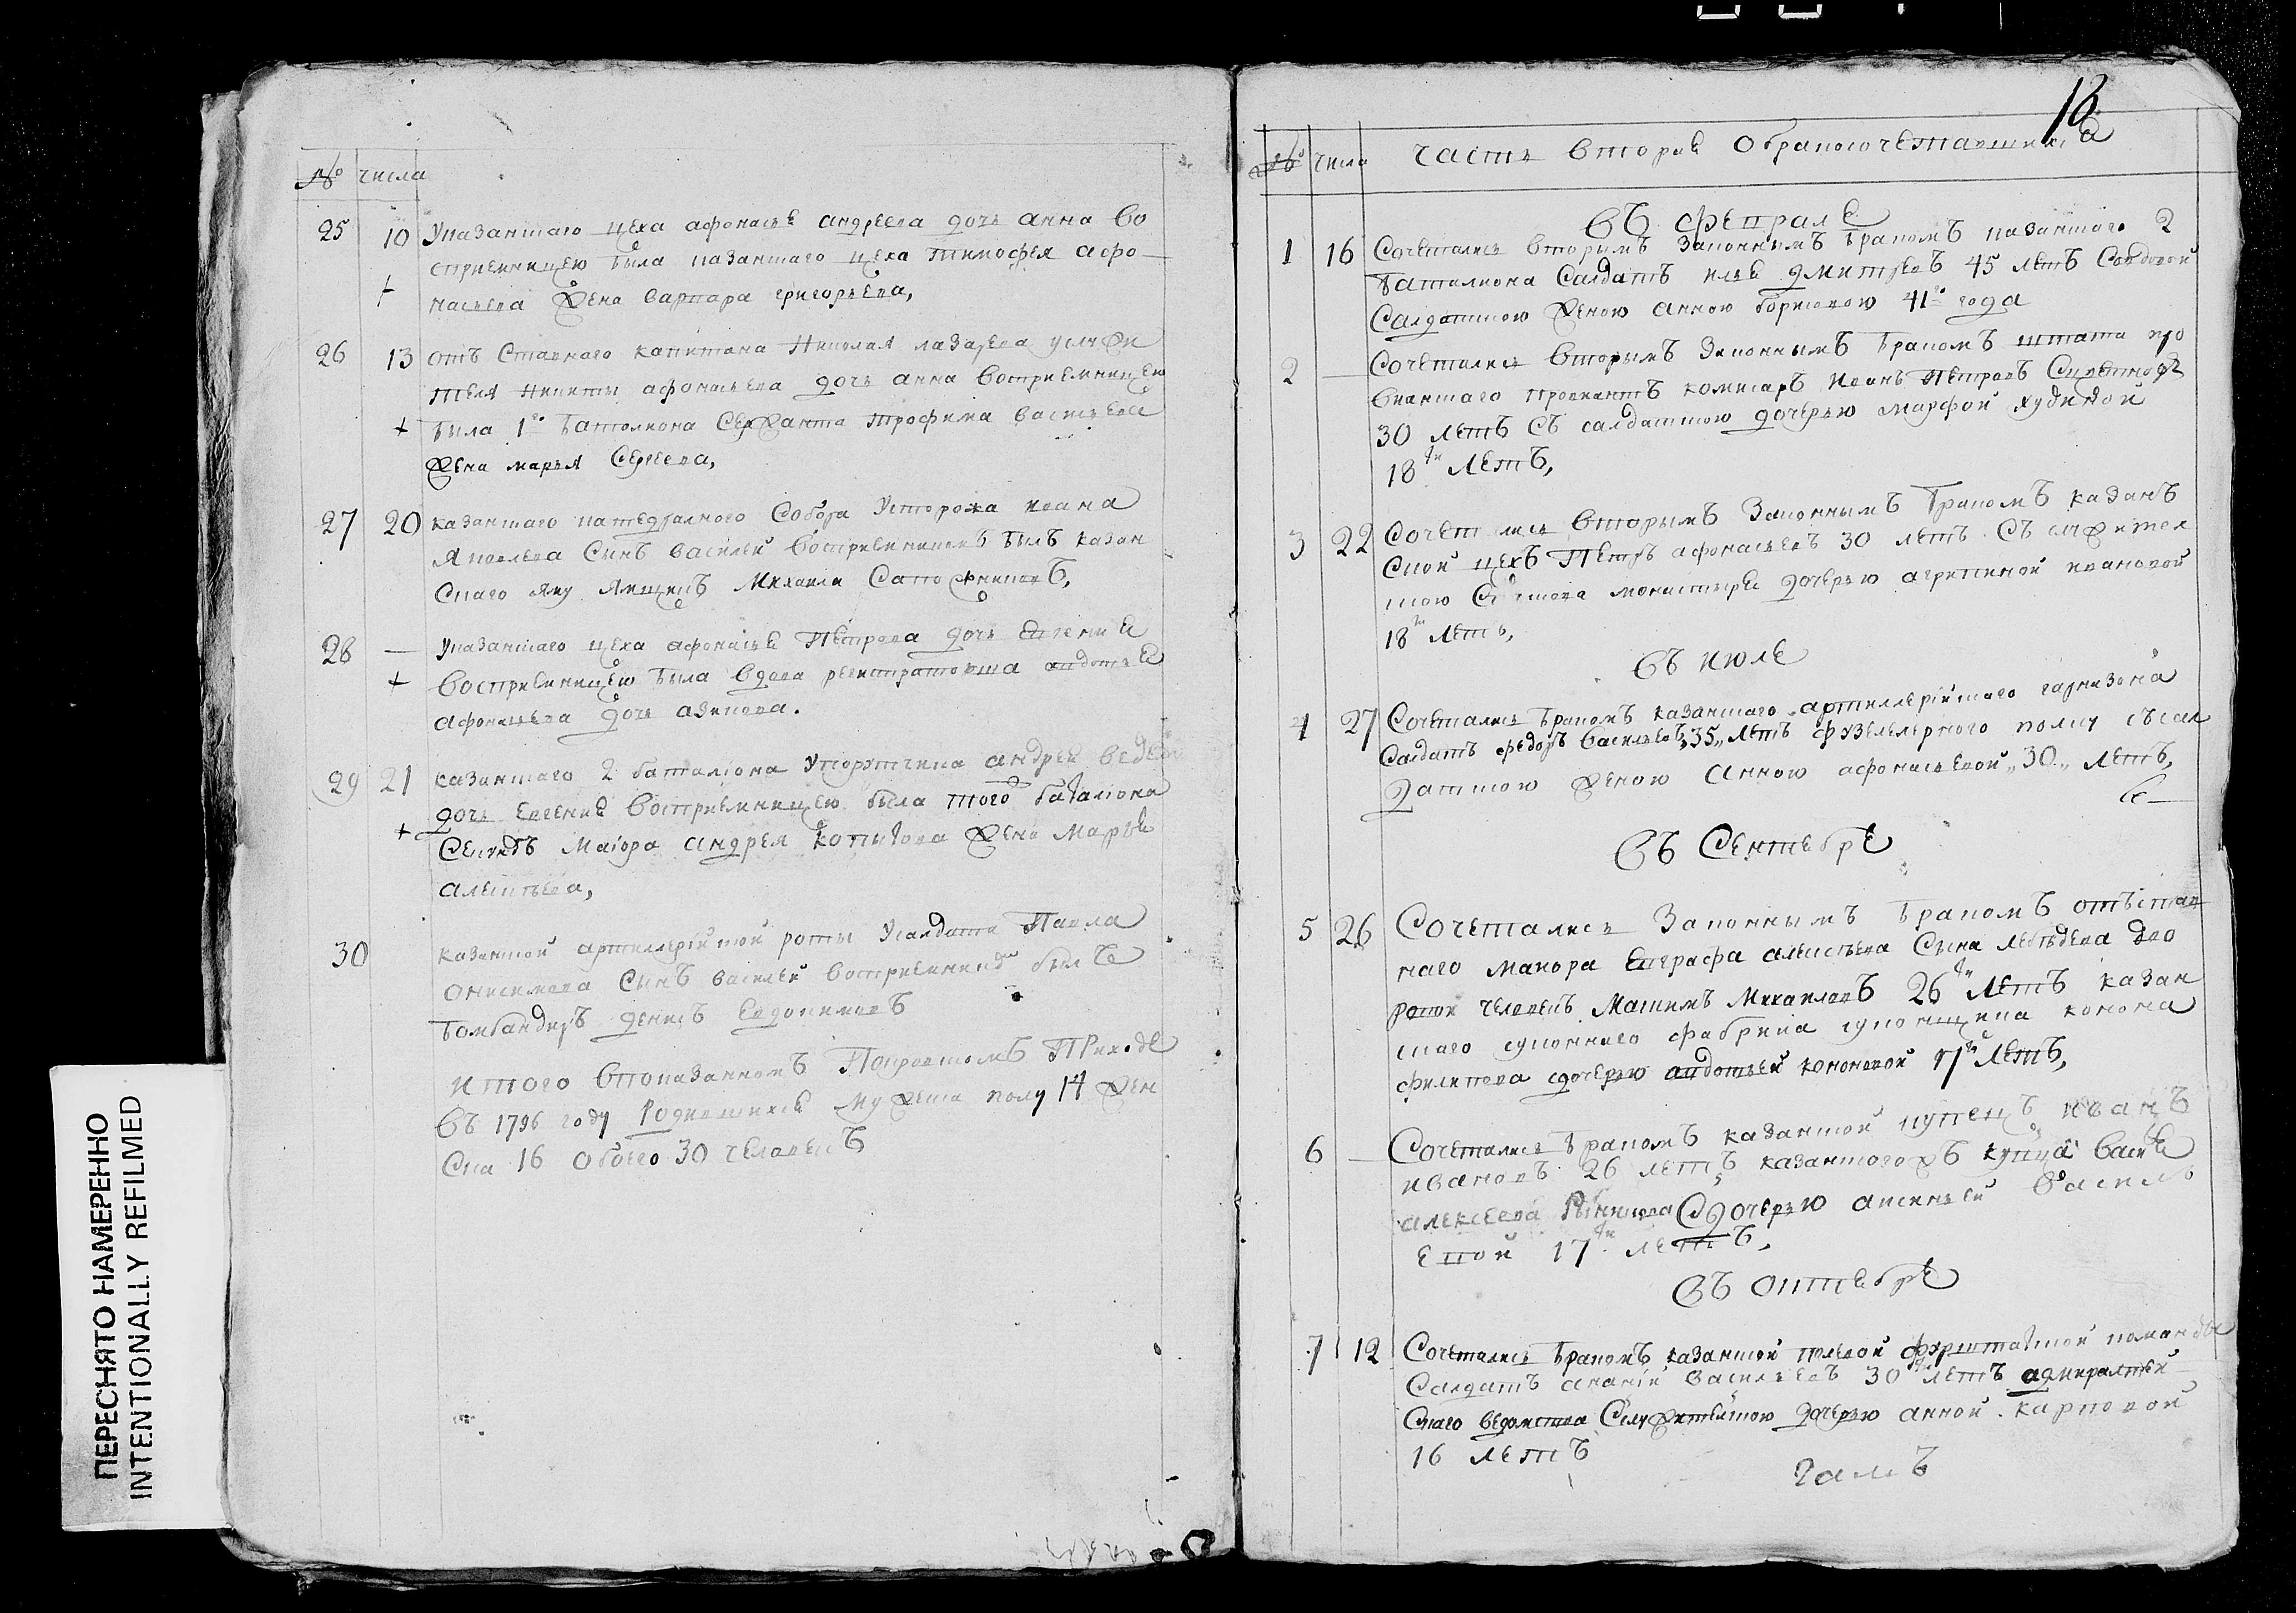 № числа
25 10 Указанскаго цеха афонасья андреева дочь анна во
сприемницею была казанскаго цеха тимофея афо
+ насьева жена варвара григорьева,
26 13 отъ Ставнаго капитана Николая лазарева услужи
теля никиты афонасьева дочь анна восприемницею
+ была 1го баталиона Сержанта трофима васильева
жена марья Сергеева,
27 20 казанскаго катедралного Собора Усторожа ивана
Яковлева Сынъ василей восприемникомъ былъ казан
скаго яму Ямщикъ Михаила Сапожниковъ,
28 — Указанскаго цеха афонасья Петрова дочь Евгения
+ восприемницею была вдова регистраторша авдотья
афонасьева дочь азикова.
29 21 казанскаго 2 баталиона Упорутчика андрея
дочь Евгения восприемницею была того баталиона
+ Секундъ Маiора андрея копытова жена Марья
алексеева,
30 казанской артиллерiйской роты Усалдата Павла
онисимова Сынъ василей восприемникъ былъ
бомбандиръ денисъ Евдокимовъ
итого впоказанномъ Покровскомъ Приходе
въ 1796 году Родившихся мужеска полу 14 жен
ска 16 обоего 30 человекъ
18
№ числа часть вторая Обракосочетавшихся
въ феврале
1 16 Сочетались вторымъ Законнымъ бракомъ казанскаго 2
баталиона Салдатъ илья дмитревъ 45 летъ Совдовой
Салдатскою женою анною борисовою 41го года
2 — Сочетались вторымъ Законнымъ бракомъ штата про
вианскаго провиантъ комисаръ иванъ Петровъ
30 летъ съ салдатскою дочерью марфой худиной
18ти летъ,
3 22 Сочетались вторымъ Законнымъ бракомъ казанъ
ской цехъ Петръ афонасьевъ 30 летъ съ служител
скою монастыря дочерью агрипиной ивановой
18ти летъ,
въ июле
4 27 Сочетались бракомъ казанскаго артиллерiйскаго гарнизона
Салдатъ федоръ васильевъ „35„ летъ фузелелерного полку съсал
датскою женою анною афонасьевой „30„ летъ,
въ Сентебре
5 26 Сочетались Законнымъ бракомъ отъстав
наго маиора Евграфа алексеева Сына лебедева дво
ровой человекъ Максимъ Михаиловъ 26ти летъ казан
скаго суконнаго фабрика суконщика конона
филипова сдочерью авдотьей кононовой 17ти летъ,
6 — Сочетались бракомъ казанской купецъ иванъ
ивановъ 26 летъ казанскогожъ купца васи
алексеева Сдочерью аксиньей Василь
евой 17ти летъ,
въ октебре
7 12 Сочетались бракомъ казанской фурштатской команды
Салдатъ ананiй васильевъ 30 летъ адмиралтей
скаго ведомства Служительскою дочерью анной карповой
16 летъ
ПЕРЕСНЯТО НАМЕРЕННО
INTENTIONALLY REFILMED